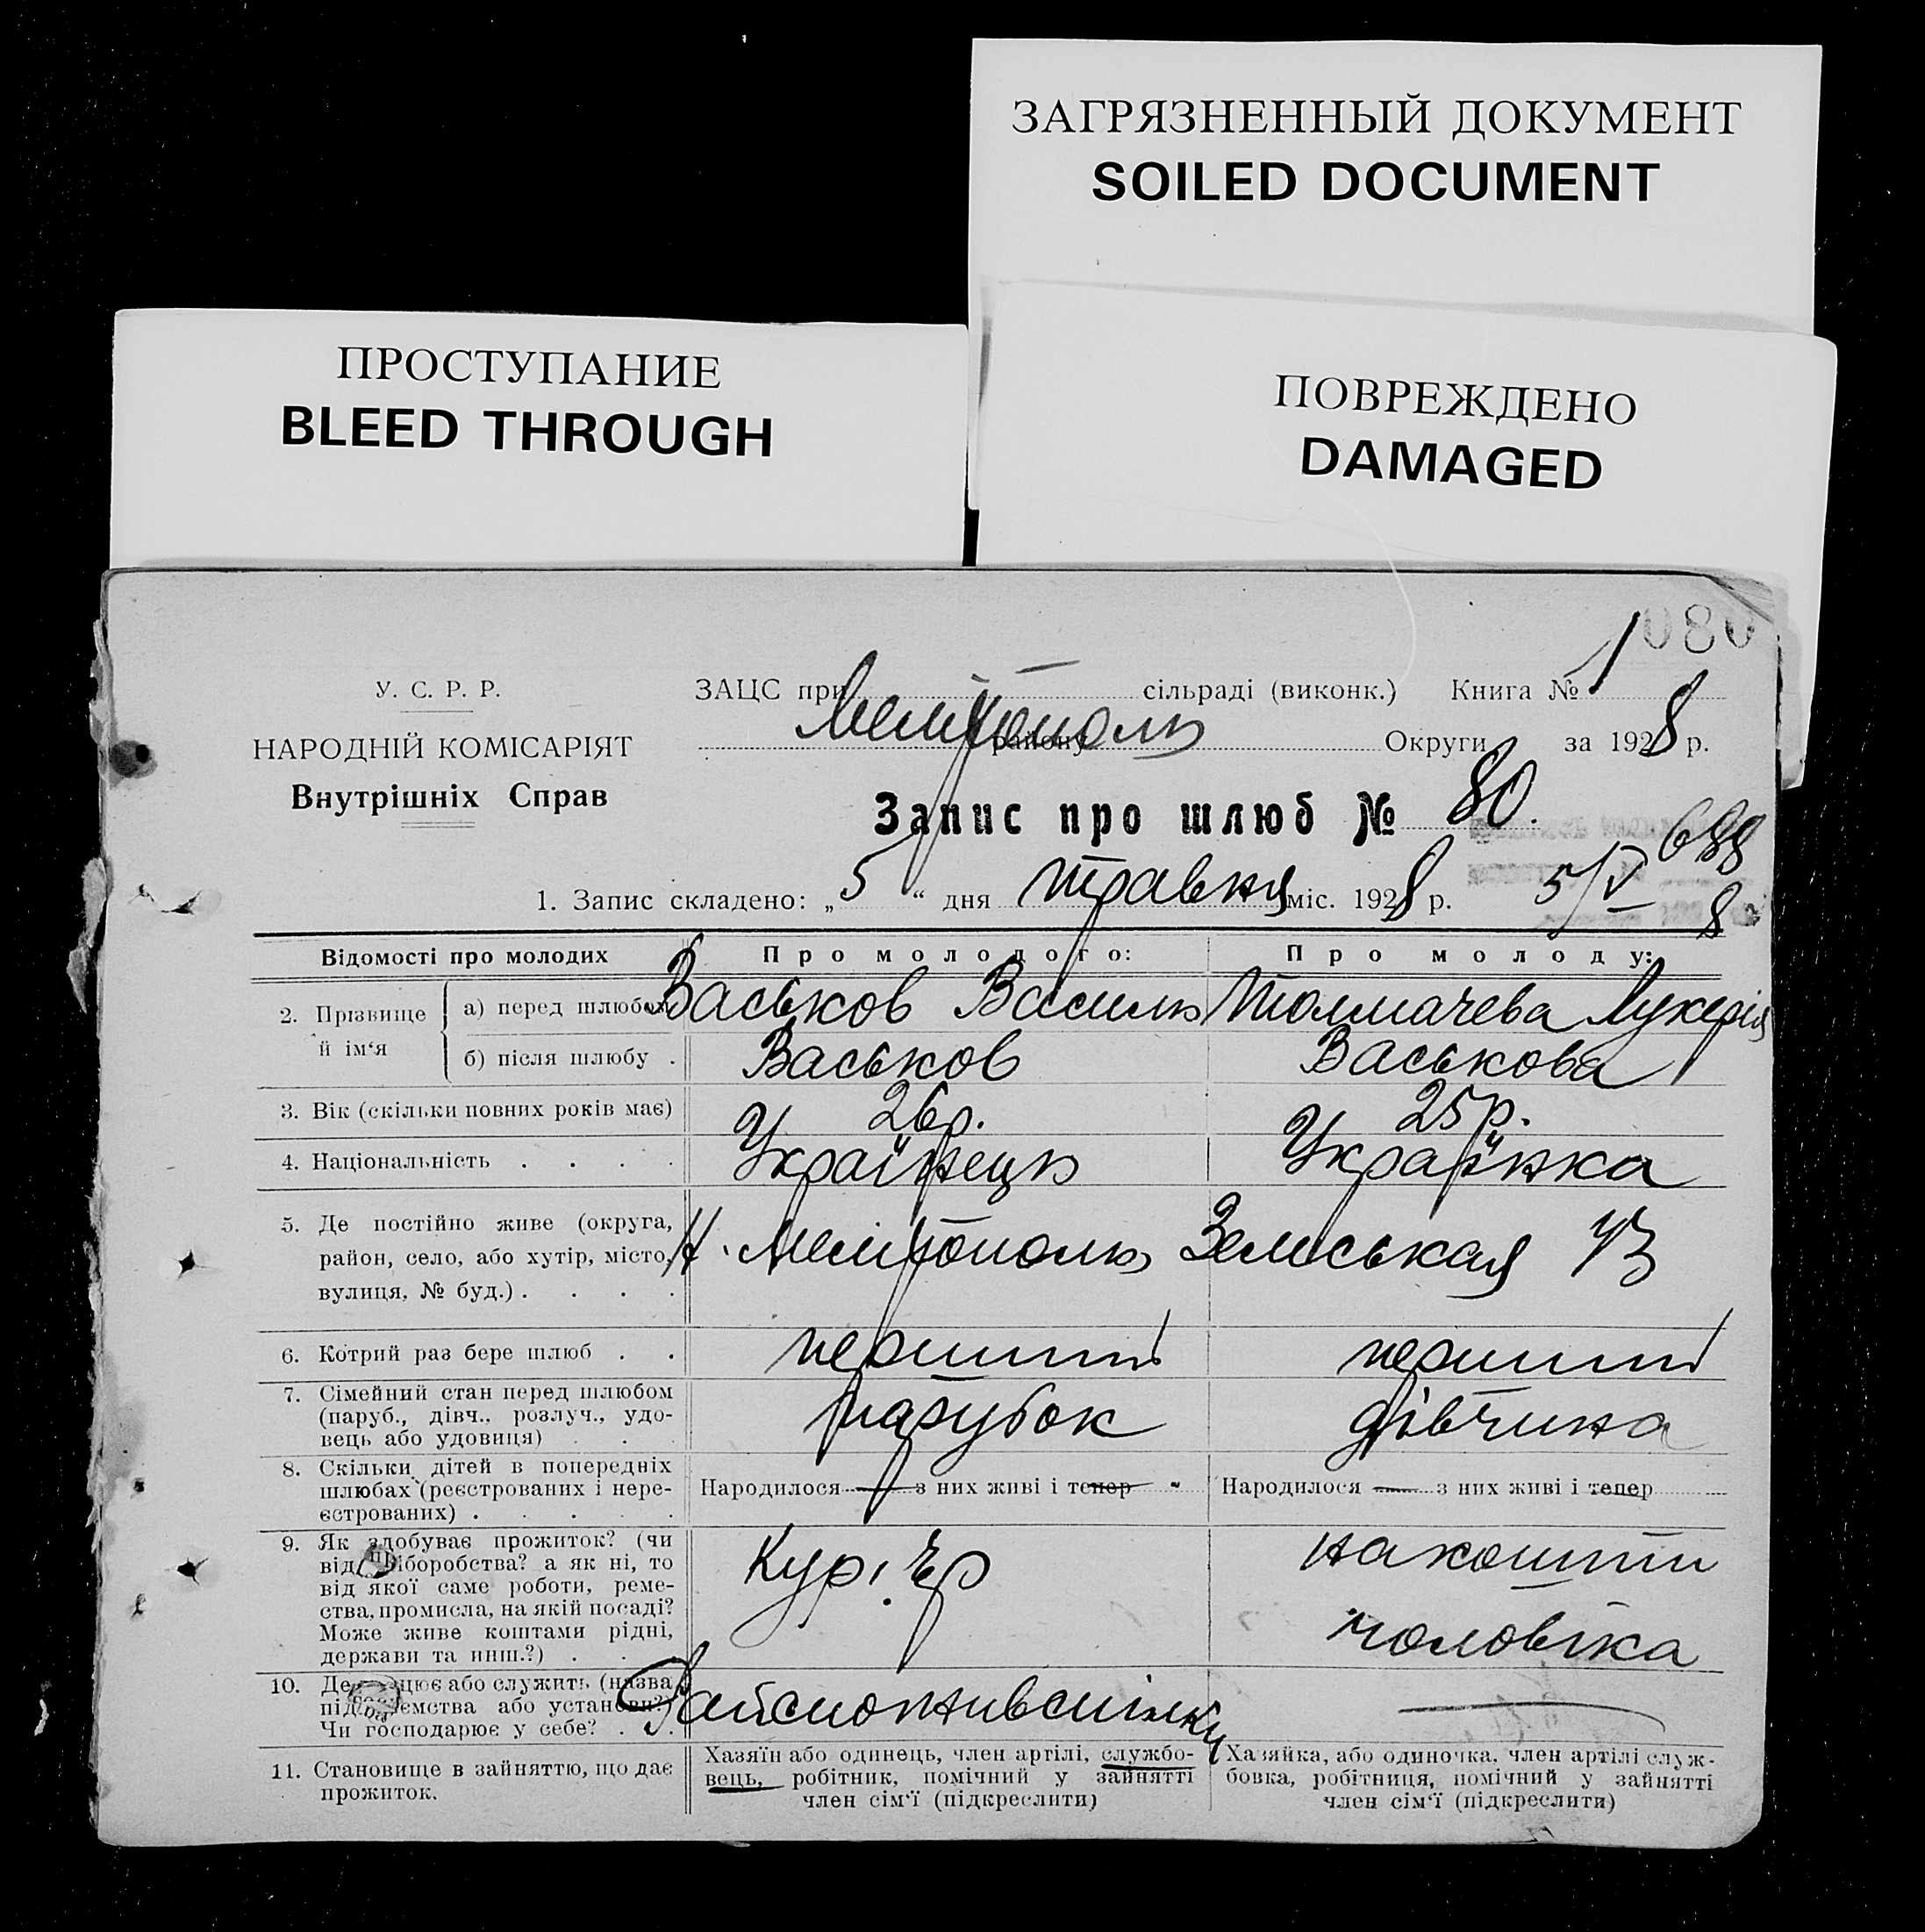 ЗАГРЯЗНЕННЫЙ ДОКУМЕНТ
SOILED DOCUMENT
ПРОСТУПАНИЕ
BLEED THROUGH
ПОВРЕЖДЕНО
DAMAGED
080
У. С. Р. Р.
НАРОДНІЙ КОМІСАРІЯТ
Внутрішніх Справ
ЗАЦС при сільраді (виконк.) Книга № 1
Мелітополь району Округи за 1928 р.
Запис про шлюб № 80.
688
1. Запис складено: „5“ дня травня міс. 1928 р. 5/V 8
Відомості про молодих
Про молодого:
Про молоду:
2. Прізвище й ім‘я
а) перед шлюбом
Васьков Василь
Толмачева Лукерія
б) після шлюбу .
Васьков
Васькова
3. Вік (скільки повних років має)
26р.
25р.
4. Національність . . . .
Українець
Українка
5. Де постійно живе (округа,
район, село, або хутір, місто,
вулиця, № буд.) . . . .
Мелітополь, Земськая 43
6. Котрий раз бере шлюб . .
перший
перший
7. Сімейний стан перед шлюбом
(паруб., дівч., розлуч., удо-
вець або удовиця) . .
парубок
дівчина
8. Скільки дітей в попередніх
шлюбах (реєстрованих і нере-
єстрованих) . . . . .
Народилося — з них живі і тепер
Народилося — з них живі і тепер
9. Як здобуває прожиток? (чи
від хліборобства? а як ні, то
від якої саме роботи, реме-
ства, промисла, на якій посаді?
Може живе коштами рідні,
держави та инш.?) . .
Кур'єр
на кошти
чоловіка
10. Де працює або служить (назва
підприємства або установи?)
Чи господарює у себе? . .
Райспоживспілки
11. Становище в зайняттю, що дає
прожиток.
Хазяїн або одинець, член артілі, службо-
вець, робітник, помічний у зайнятті
член сім‘ї (підкреслити)
Хазяйка, або одиночка, член артілі служ-
бовка, робітниця, помічний у зайнятті
член сім‘ї (підкреслити)